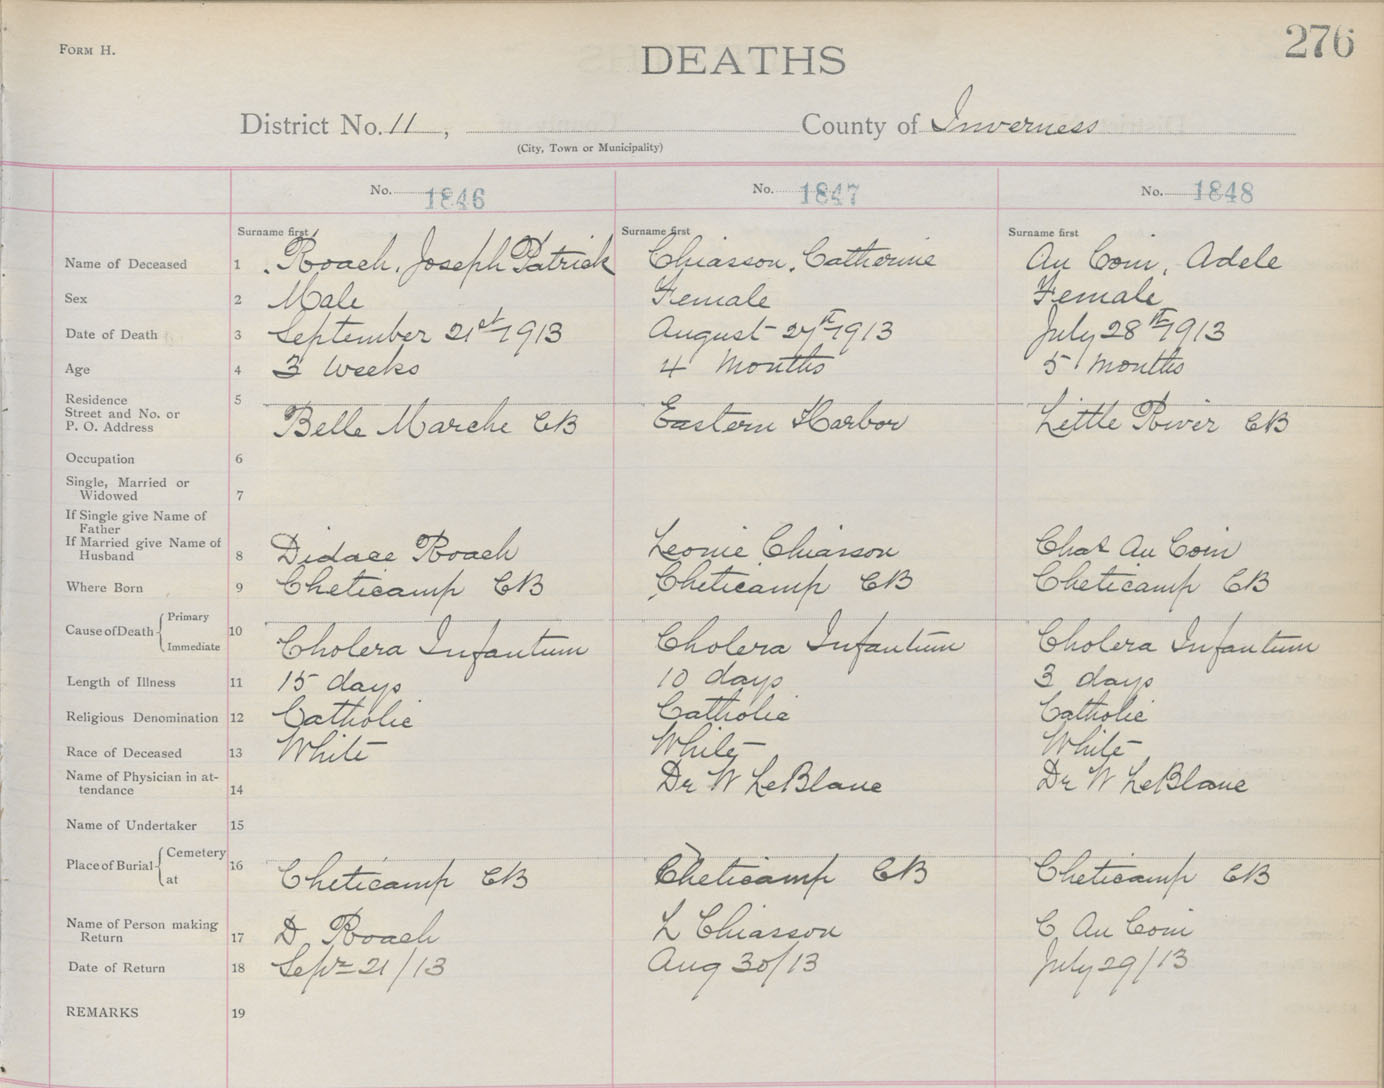 FORM H.
DEATHS
276
District No. 11, County of Inverness
(City, Town or Municipality)
No. 1846 No. 1847 No. 1848
Surname first Surname first Surname first
Name of Deceased 1 Roach, Joseph Patrick Chiasson, Catherine Au Coin, Adele
Sex 2 Male Female Female
Date of Death 3 September 21st 1913 August 27th 1913 July 28th 1913
Age 4 3 Weeks 4 Months 5 Months
Residence 5
Street and No. or
P. O. Address Belle Marche CB Eastern Harbor Little River CB
Occupation 6
Single, Married or
Widowed 7
If Single give Name of
Father
If Married give Name of
Husband 8 Didace Roach Leonie Chiasson Chas Au Coin
Where Born 9 Cheticamp CB Cheticamp CB Cheticamp CB
Cause of Death Primary
Immediate 10 Cholera Infantum Cholera Infantum Cholera Infantum
Length of Illness 11 15 days 10 days 3 days
Religious Denomination 12 Catholic Catholic Catholic
Race of Deceased 13 White White White
Name of Physician in at-
tendance 14 Dr W LeBlanc Dr W LeBlanc
Name of Undertaker 15
Place of Burial Cemetery
at 16 Cheticamp CB Cheticamp CB Cheticamp CB
Name of Person making
Return 17 D Roach L Chiasson C Au Coin
Date of Return 18 Sept 21/13 Aug 30/13 July 29/13
REMARKS 19